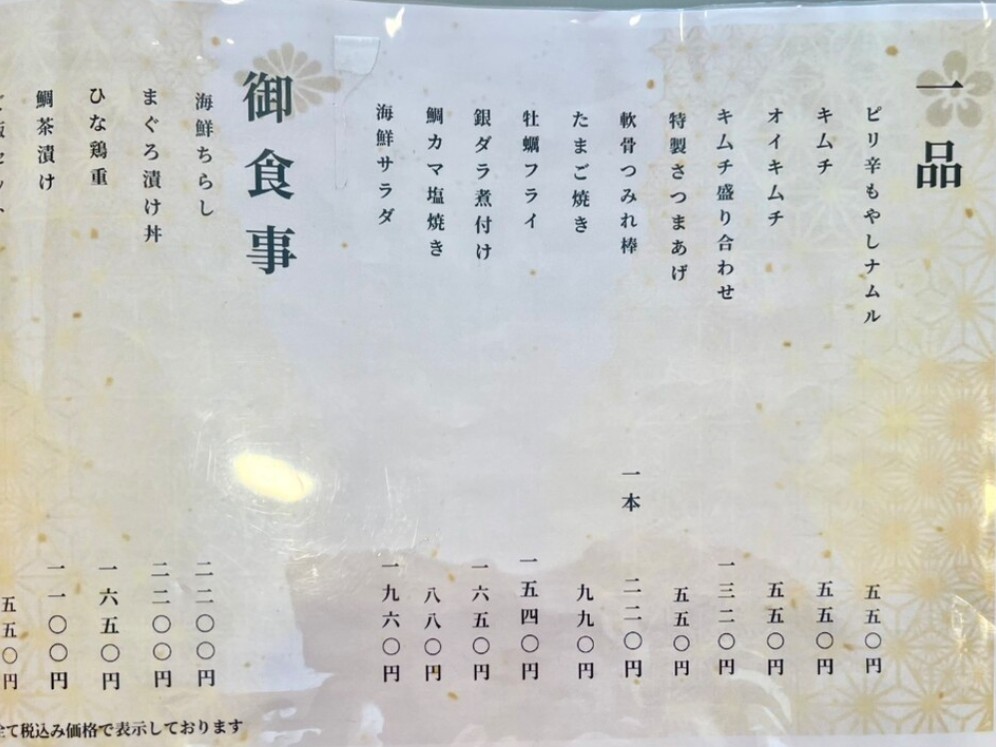 一品
ピリ辛もやしナムル 五五〇円
キムチ 五五〇円
オイキムチ 五五〇円
キムチ盛り合わせ 一三二〇円
特製さつまあげ 五五〇円
軟骨つみれ棒 一本 二二〇円
たまご焼き 九九〇円
牡蠣フライ 一五四〇円
銀ダラ煮付け 一六五〇円
鯛カマ塩焼き 八八〇円
海鮮サラダ 一九六〇円
御食事
海鮮ちらし 二二〇〇円
まぐろ漬け丼 二二〇〇円
ひな鶏重 一六五〇円
鯛茶漬け 一一〇〇円
五五〇円
全て税込み価格で表示しております